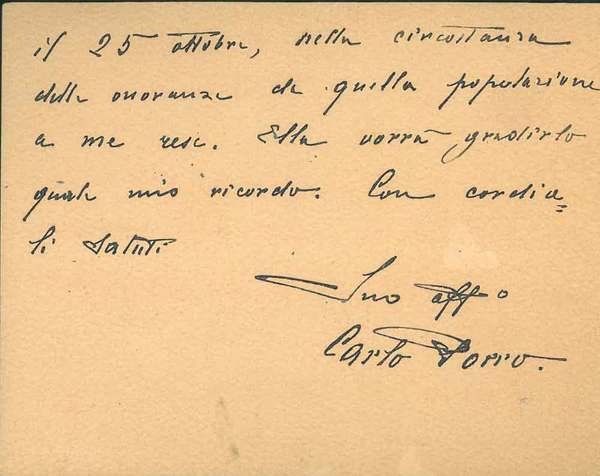 il 25 ottobre, nella circostanza
delle onoranze da quella popolazione
a me rese. Ella vorrà gradirlo
quale mio ricordo. Con cordia=
li saluti
Suo affo
Carlo Porro.